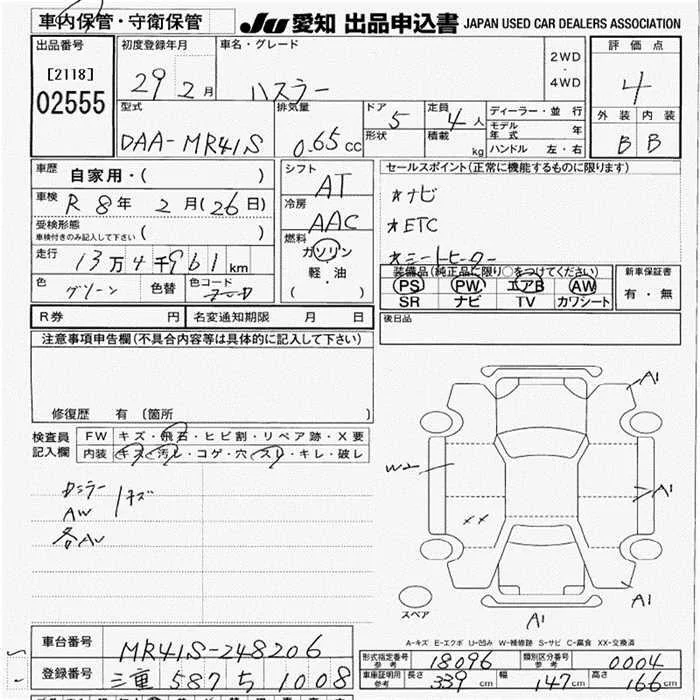 車内保管・守衛保管
JU 愛知 出品申込書 JAPAN USED CAR DEALERS ASSOCIATION
出品番号
[2118]
02555
初度登録年月
29 2月
車名・グレード
ハスラー
2WD
・
4WD
評価点
4
外装 内装
B B
型式
DAA-MR41S
排気量
0.65cc
ドア 5
形状
定員 4人
積載 kg
ディーラー・並行
モデル年式 年
ハンドル 左・右
車歴
自家用・( )
車検 R8年 2月(26日)
受検形態
車検付きのみ記入して下さい ( )
走行 13万4千961km
色 グリーン 色替 色コード
シフト
AT
冷房
AAC
燃料
ガソリン
軽・油
( )
セールスポイント(正常に機能するものに限ります)
*ナビ
*ETC
*シートヒーター
装備品(純正品に限り○をつけてください)
PS PW エアB AW
SR ナビ TV カワシート
新車保証書
有・無
R券 円 名変通知期限 月 日
後日品
注意事項申告欄(不具合内容等は具体的に記入して下さい)
修復歴 有 (箇所 )
検査員記入欄
FW キズ・飛石・ヒビ割・リペア跡・X要
内装 キズ・汚レ・コゲ・穴・スレ・キレ・破レ
AW
キズ
A1
W2
A1
XX
A1
A1
スペア
A-キズ E-エクボ U-凹み W-補修跡 S-サビ C-腐食 XX-交換済
車台番号 MR41S-248206
登録番号 三重 587 ち 1008
形式指定番号 参考 18096 類別区分番号 参考 0004
車庫証明用 参考 長さ 339cm 幅 147cm 高さ 166cm